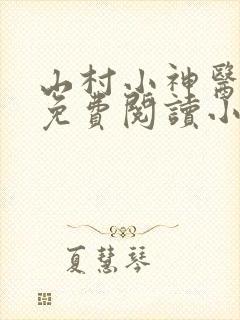 山村小神醫
免費閱讀小
夏慧琴